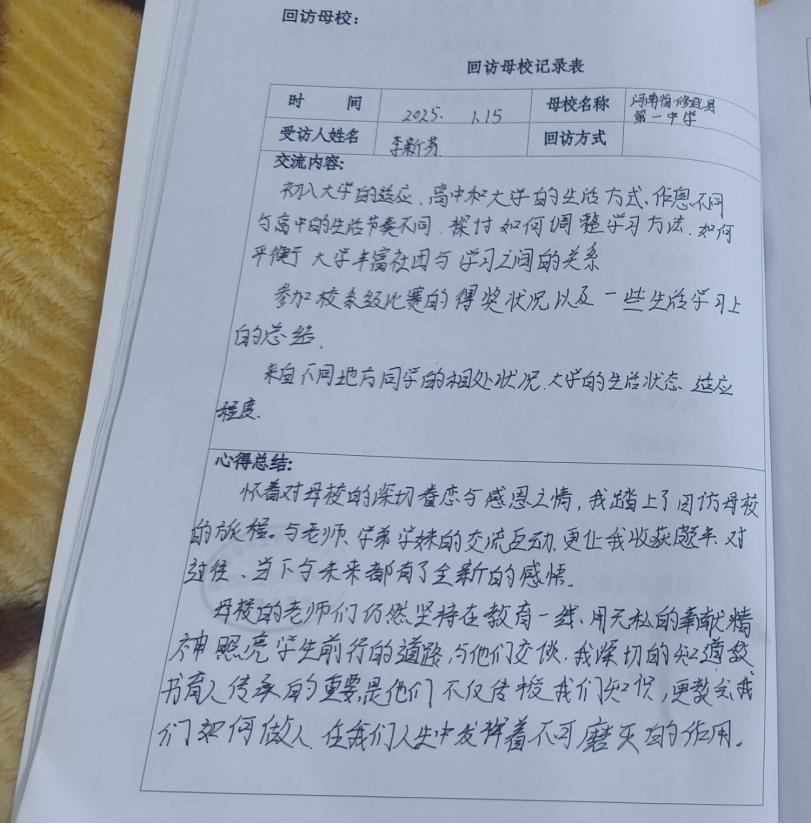 回访母校：
回访母校记录表
时 间 2025. 1.15 母校名称 河南省修武县
第一中学
受访人姓名 李新芳 回访方式
交流内容:
初入大学的适应、高中和大学的生活方式、作息不同
与高中的生活节奏不同、探讨如何调整学习方法、如何
平衡于大学丰富社团与学习之间的关系
参加校系级比赛的得奖状况以及一些生活学习上
的总结.
来自不同地方同学的相处状况、大学的生活状态、适应
程度.
心得总结:
怀着对母校的深切眷恋与感恩之情，我踏上了回访母校
的旅程。与老师、学弟学妹的交流互动，更让我收获颇丰、对
过往、当下与未来都有了全新的感悟。
母校的老师们仍然坚持在教育一线、用无私的奉献精
神照亮学生前行的道路，与他们交谈，我深切的知道教
书育人传承的重要，是他们不仅传授我们知识，更教会我
们如何做人、在我们人生中发挥着不可磨灭的作用。